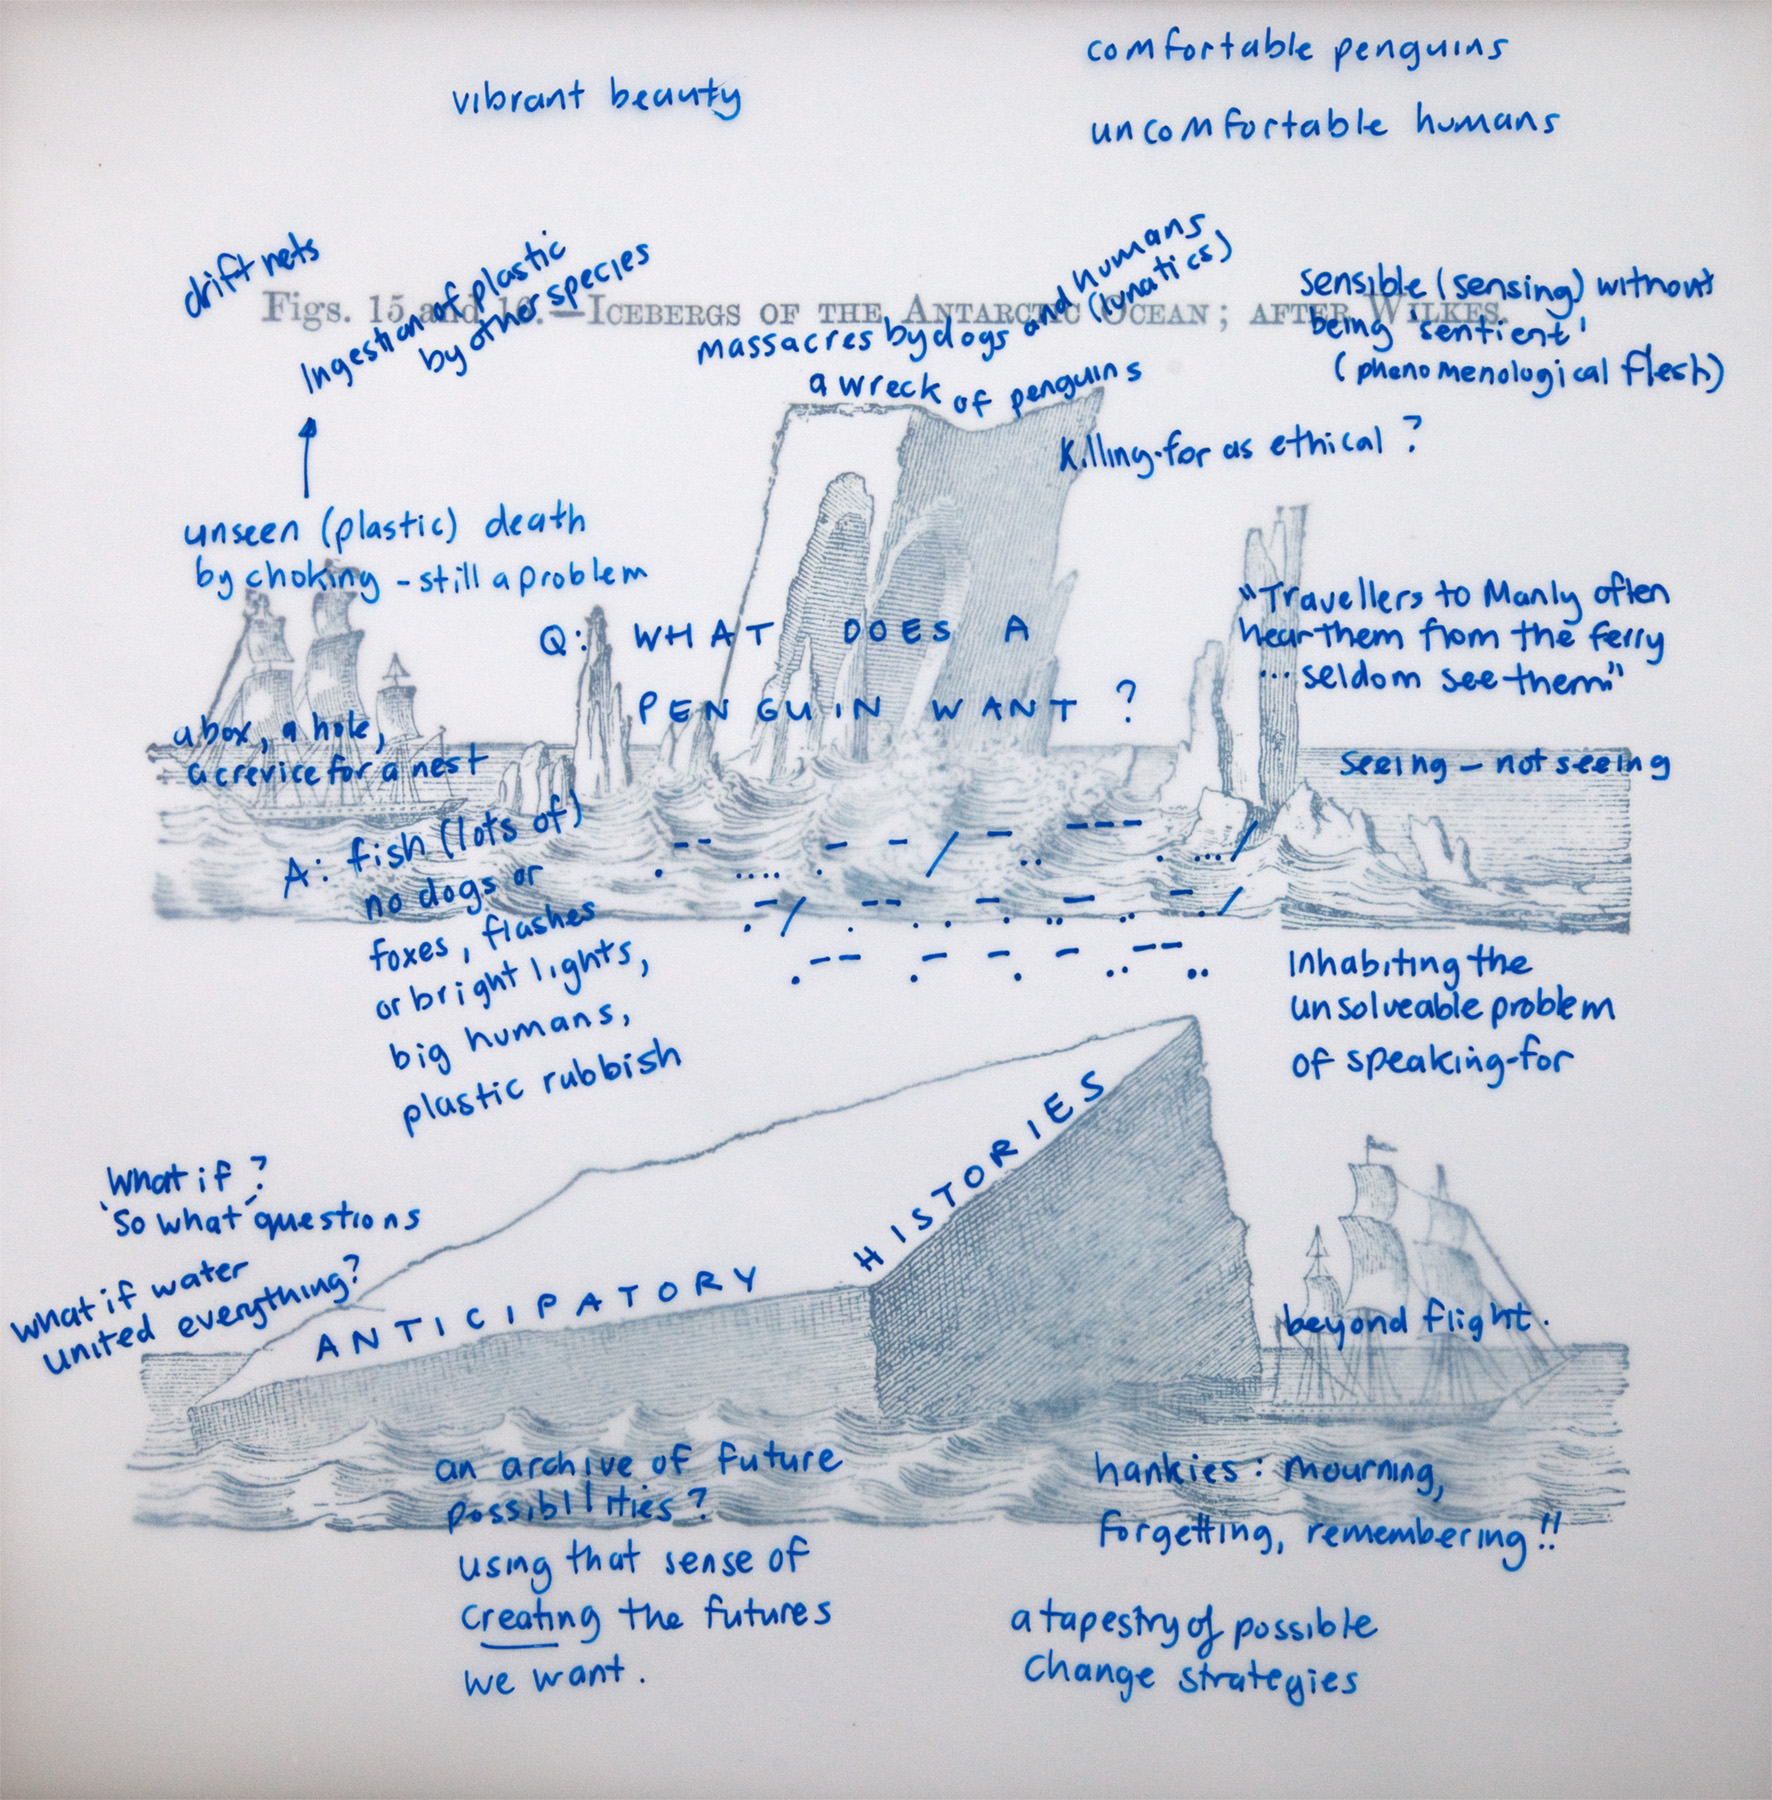 comfortable penguins
uncomfortable humans
vibrant beauty
drift nets
Ingestion of plastic
by other species
massacres by dogs and humans
(lunatics)
a wreck of penguins
sensible (sensing) without
being 'sentient'
(phenomenological flesh)
Figs. 15 and 16.—Icebergs of the Antarctic Ocean; after Wilkes.
Killing-for as ethical?
unseen (plastic) death
by choking - still a problem
Q: WHAT DOES A
PENGUIN WANT?
"Travellers to Manly often
hear them from the ferry
... seldom see them."
a box, a hole,
a crevice for a nest
seeing - not seeing
A: fish (lots of)
no dogs or
foxes, flashes
or bright lights,
big humans,
plastic rubbish
.-- .... .- - / -.. --- . ... /
.- / .--. . -. --. ..- .. -. /
.-- .- -. - ..--..
Inhabiting the
unsolveable problem
of speaking-for
What if?
'So what' questions
what if water
united everything?
ANTICIPATORY HISTORIES
beyond flight.
an archive of future
possibilities?
using that sense of
creating the futures
we want.
hankies: mourning,
forgetting, remembering!!
a tapestry of possible
change strategies